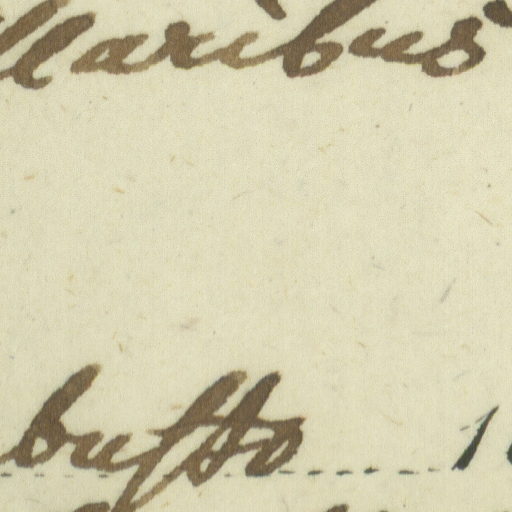 llaribus
busto 1